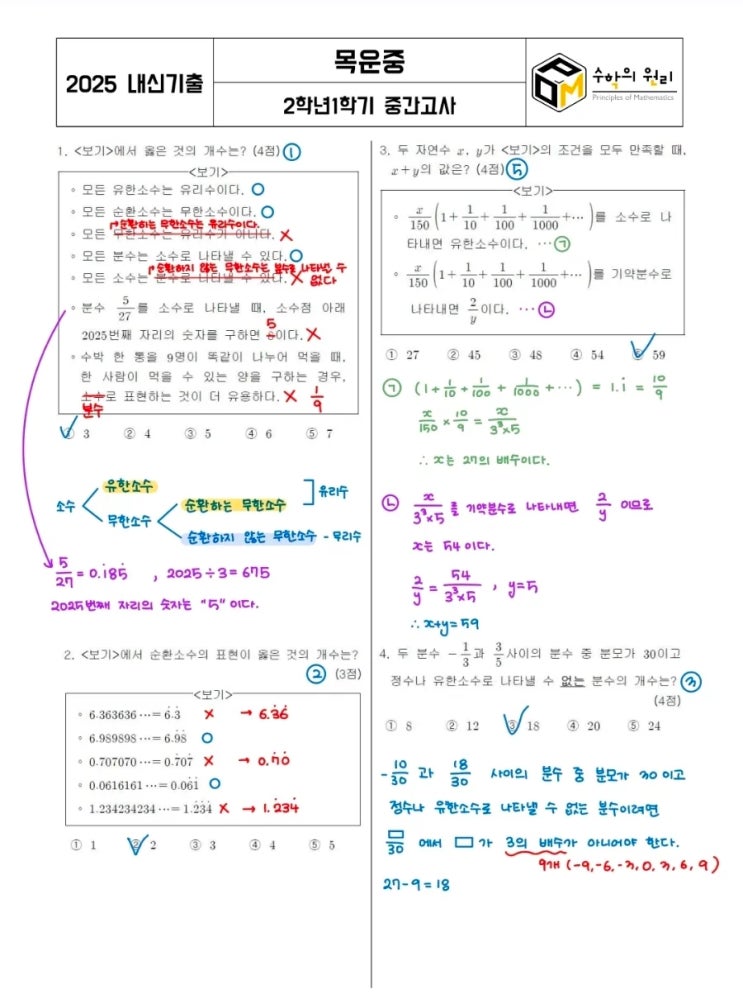 2025 내신기출
목운중
2학년1학기 중간고사
수학의 원리
Principles of Mathematics
1. <보기>에서 옳은 것의 개수는? (4점) ①
<보기>
∘ 모든 유한소수는 유리수이다. O
∘ 모든 순환소수는 무한소수이다. O
순환하는 무한소수는 유리수이다.
∘ 모든 무한소수는 유리수가 아니다. X
∘ 모든 분수는 소수로 나타낼 수 있다. O
순환하지 않는 무한소수는 분수로 나타낼 수 없다
∘ 모든 소수는 분수로 나타낼 수 있다. X
∘ 분수 5/27 를 소수로 나타낼 때, 소수점 아래
5
2025번째 자리의 숫자를 구하면 8이다. X
∘ 수박 한 통을 9명이 똑같이 나누어 먹을 때,
한 사람이 먹을 수 있는 양을 구하는 경우,
소수로 표현하는 것이 더 유용하다. X 1/9
분수
① 3 ② 4 ③ 5 ④ 6 ⑤ 7
소수
유한소수
무한소수
순환하는 무한소수
유리수
순환하지 않는 무한소수 - 무리수
5/27 = 0.1̇85̇ , 2025÷3=675
2025번째 자리의 숫자는 "5" 이다.
2. <보기>에서 순환소수의 표현이 옳은 것의 개수는?
② (3점)
<보기>
∘ 6.363636⋯= 6.3̇ X → 6.3̇6̇
∘ 6.989898⋯= 6.9̇8̇ O
∘ 0.707070⋯= 0.7̇07̇ X → 0.7̇0̇
∘ 0.0616161⋯= 0.06̇1̇ O
∘ 1.234234234⋯= 1.2̇3̇4̇ X → 1.2̇34̇
① 1 ② 2 ③ 3 ④ 4 ⑤ 5
3. 두 자연수 x, y가 <보기>의 조건을 모두 만족할 때,
x+y의 값은? (4점) ⑤
<보기>
∘ x/150 (1+1/10+1/100+1/1000+⋯)를 소수로 나
타내면 유한소수이다. ⋯㉠
∘ x/150 (1+1/10+1/100+1/1000+⋯)를 기약분수로
나타내면 2/y 이다. ⋯㉡
① 27 ② 45 ③ 48 ④ 54 ⑤ 59
㉠ (1+1/10+1/100+1/1000+⋯) = 1.1̇ = 10/9
x/150 × 10/9 = x/3³×5
∴ x는 27의 배수이다.
㉡ x/3³×5 를 기약분수로 나타내면 2/y 이므로
x는 54 이다.
2/y = 54/3³×5 , y=5
∴ x+y=59
4. 두 분수 −1/3과 3/5 사이의 분수 중 분모가 30이고
정수나 유한소수로 나타낼 수 없는 분수의 개수는? ③
(4점)
① 8 ② 12 ③ 18 ④ 20 ⑤ 24
-10/30 과 18/30 사이의 분수 중 분모가 30 이고
정수나 유한소수로 나타낼 수 없는 분수이려면
□/30 에서 □가 3의 배수가 아니어야 한다.
9개 (-9, -6, -3, 0, 3, 6, 9)
27-9=18